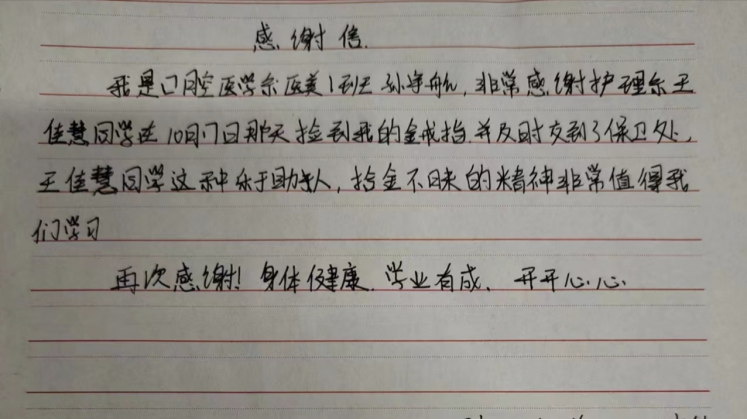 感谢信.
我是口腔医学系医美1班王孙宇航,非常感谢护理系王
佳慧同学在10月7日那天捡到我的金戒指.并及时交到了保卫处,
王佳慧同学这种乐于助人,拾金不昧的精神非常值得我
们学习
再次感谢!身体健康.学业有成、开开心心